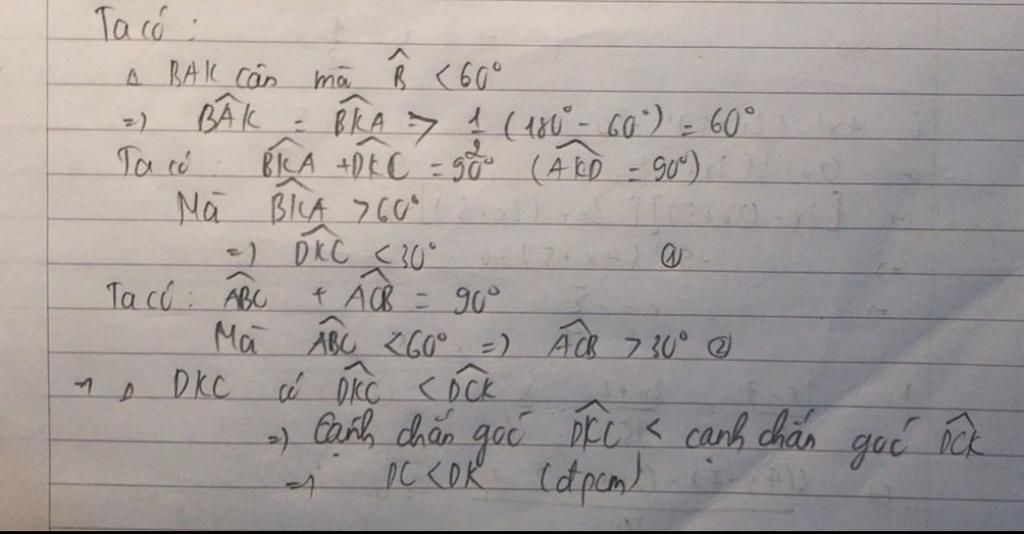 Ta có :
Δ BAK cân mà B̂ < 60°
=) BÂK = BK̂A => 1/2 (180° - 60°) = 60°
Ta có : BK̂A + DK̂C = 90° (AK̂D = 90°)
Mà BK̂A > 60°
=) DK̂C < 30° ①
Ta có : AB̂C + AĈB = 90°
Mà AB̂C < 60° =) AĈB > 30° ②
=) Δ DKC có DK̂C < DĈK
=) Cạnh chắn góc DK̂C < cạnh chắn góc DĈK
=) DC < DK (đpcm)